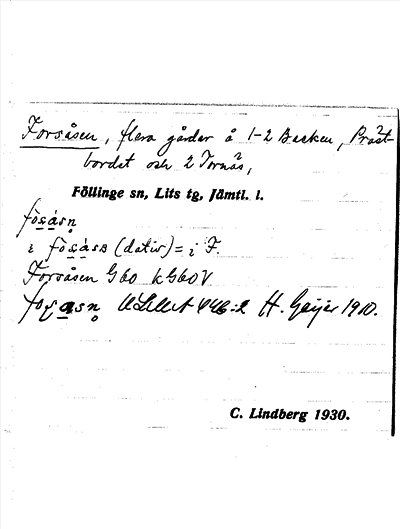 Forsåsen, flera gårdar å 1-2 Backen, Präst-
bordet och 2 Tornäs,
Föllinge sn, Lits tg, Jämtl. l.
fo̱sa̱sn̥
i fo̱sa̱sɴ (dativ) = i F.
Forsåsen G60 k G60V
fosasn̥ H. Geijer 1910.
C. Lindberg 1930.